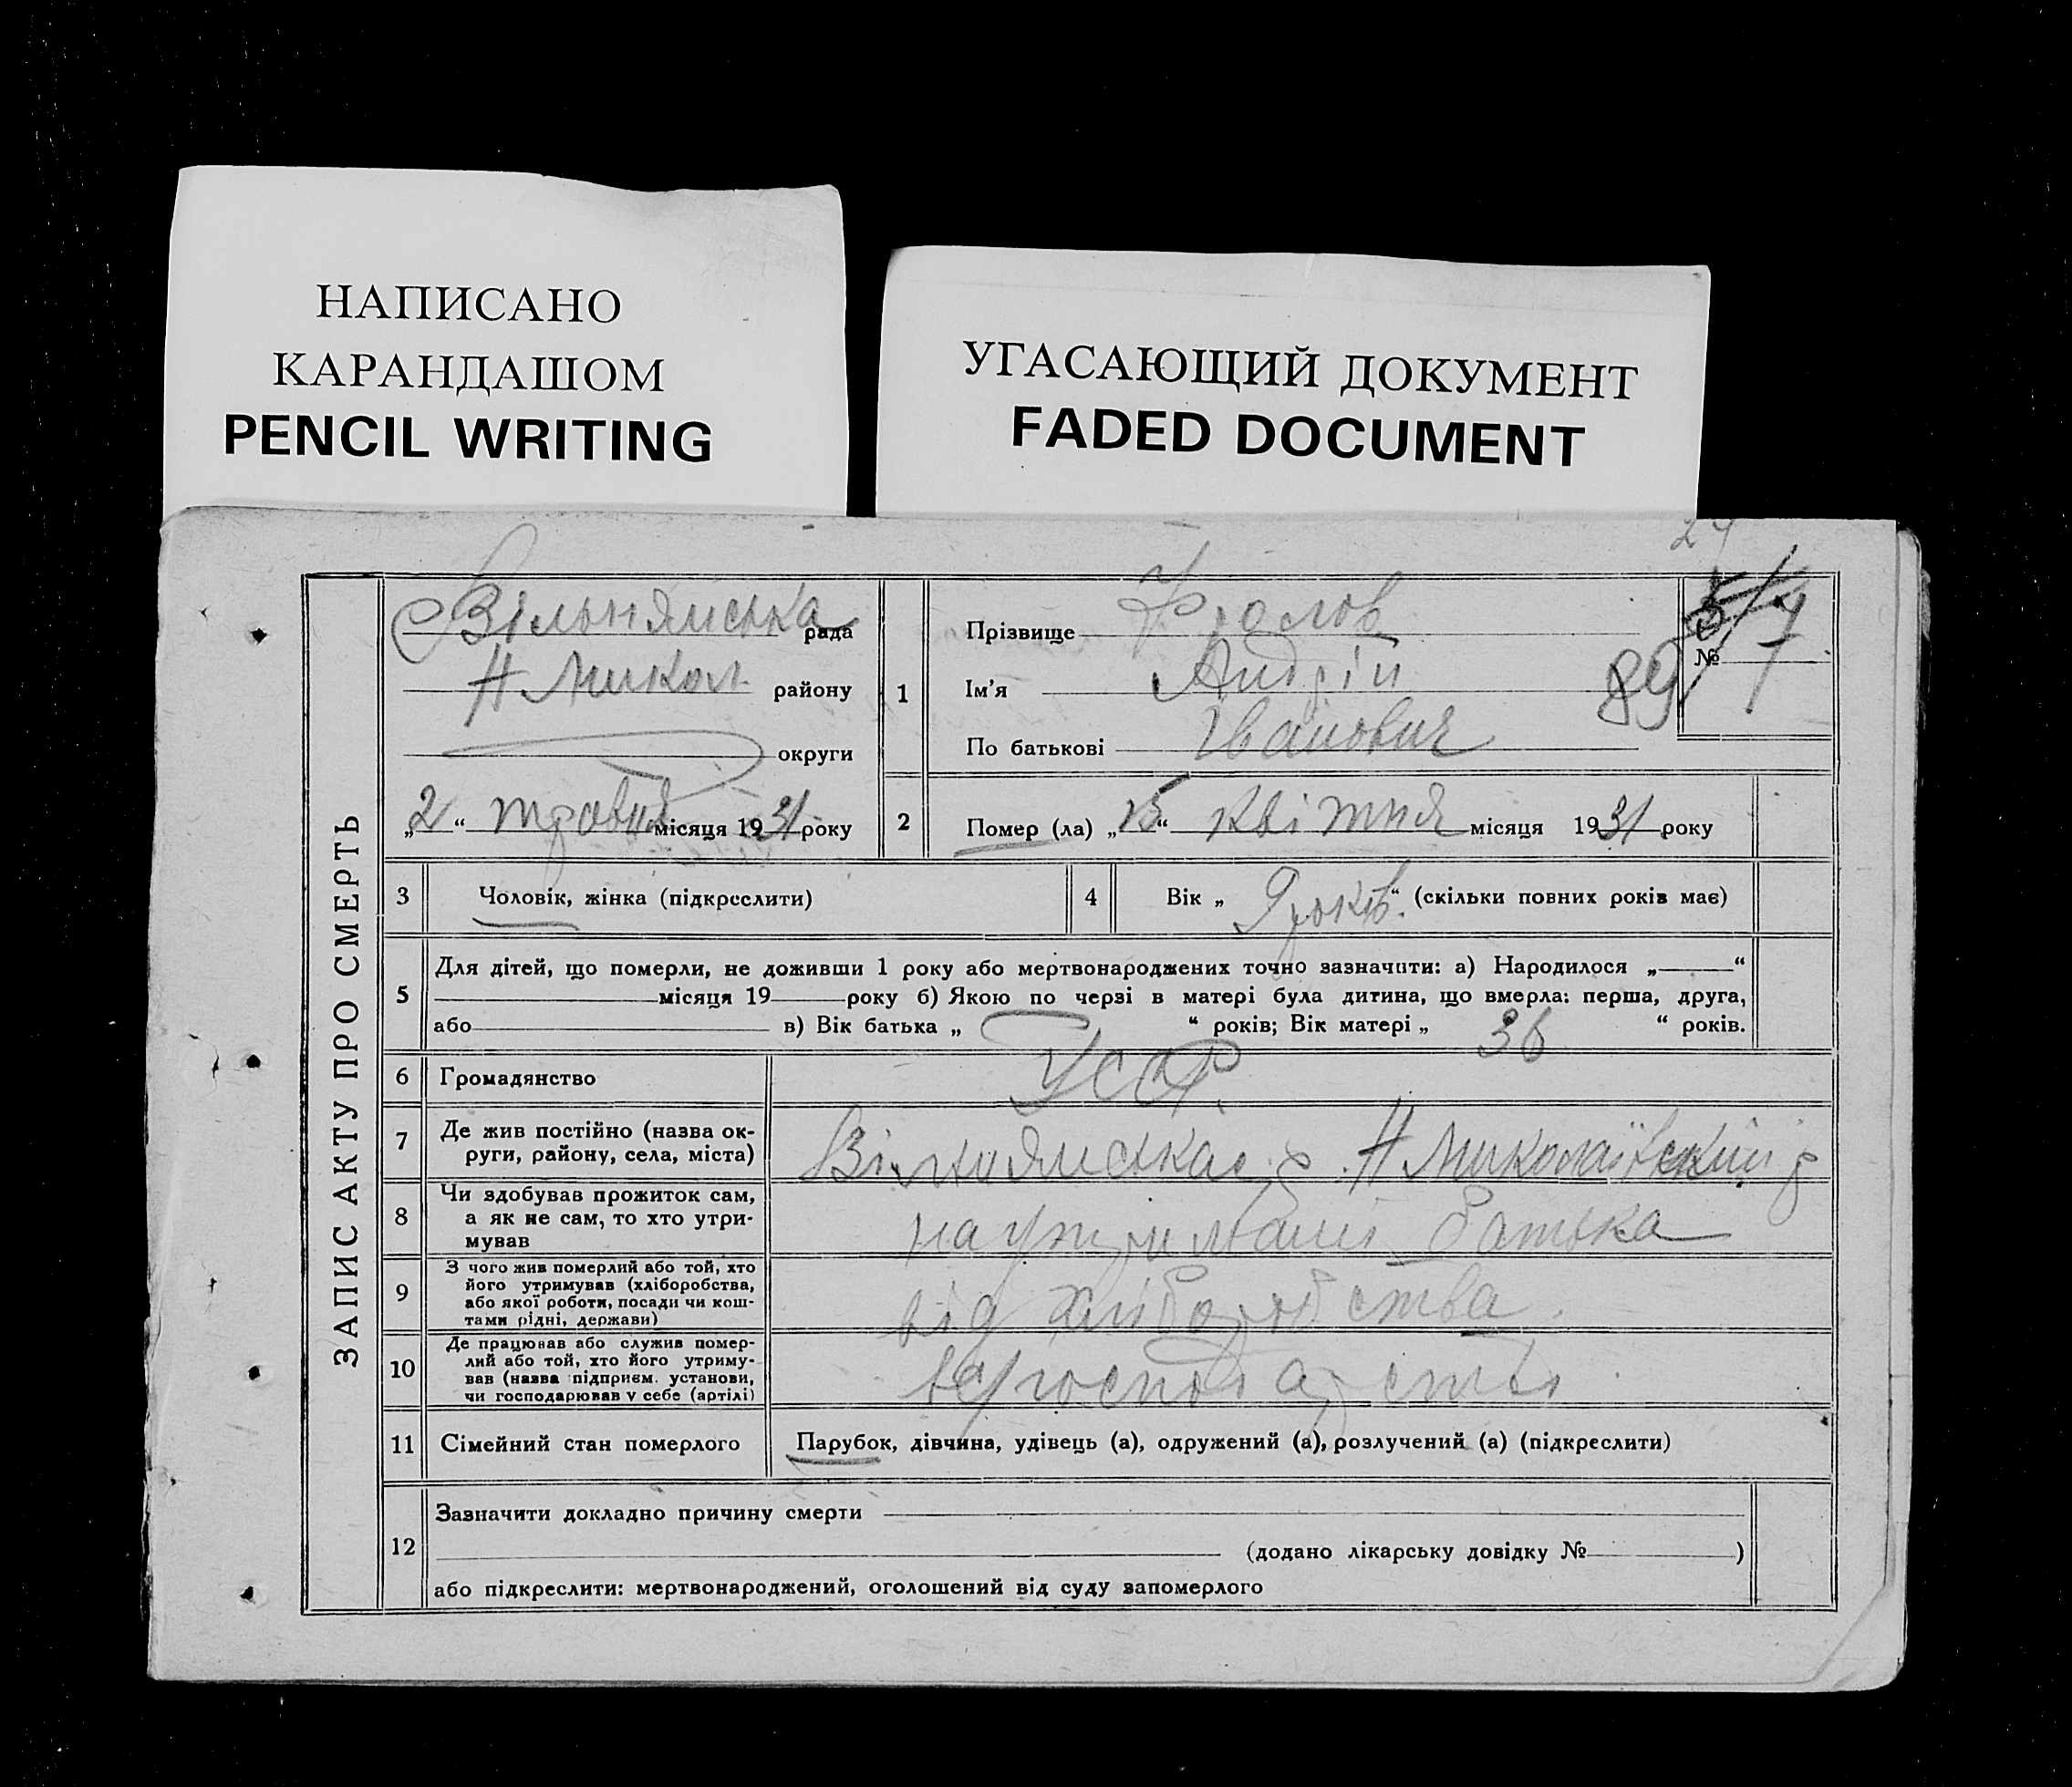 НАПИСАНО
КАРАНДАШОМ
PENCIL WRITING
УГАСАЮЩИЙ ДОКУМЕНТ
FADED DOCUMENT
24
ЗАПИС АКТУ ПРО СМЕРТЬ
Вільнянська рада
Н Микол району
округи
„2“ травня місяця 1931 року
1
Прізвище Фролов
Ім'я Андрій
По батькові Іванович
№ 7
89
2
Помер (ла) „15“ квітня місяця 1931 року
3
Чоловік, жінка (підкреслити)
4
Вік „9 років“ (скільки повних років має)
5
Для дітей, що померли, не доживши 1 року або мертвонароджених точно зазначити: а) Народилося „ “
місяця 19 року б) Якою по черзі в матері була дитина, що вмерла: перша, друга,
або в) Вік батька „ “ років; Вік матері „ 36 “ років.
6
Громадянство
УСРР
7
Де жив постійно (назва ок-
руги, району, села, міста)
Н Миколаївский р
8
Чи здобував прожиток сам,
а як не сам, то хто утри-
мував
на утриманні батька
9
З чого жив померлий або той, хто
його утримував (хліборобства,
або якої роботи, посади чи кош-
тами рідні, держави)
від хліборобства.
10
Де працював або служив помер-
лий або той, хто його утриму-
вав (назва підприєм. установи,
чи господарював у себе (артілі)
господарстві
11
Сімейний стан померлого
Парубок, дівчина, удівець (а), одружений (а), розлучений (а) (підкреслити)
12
Зазначити докладно причину смерти
(додано лікарську довідку № )
або підкреслити: мертвонароджений, оголошений від суду запомерлого